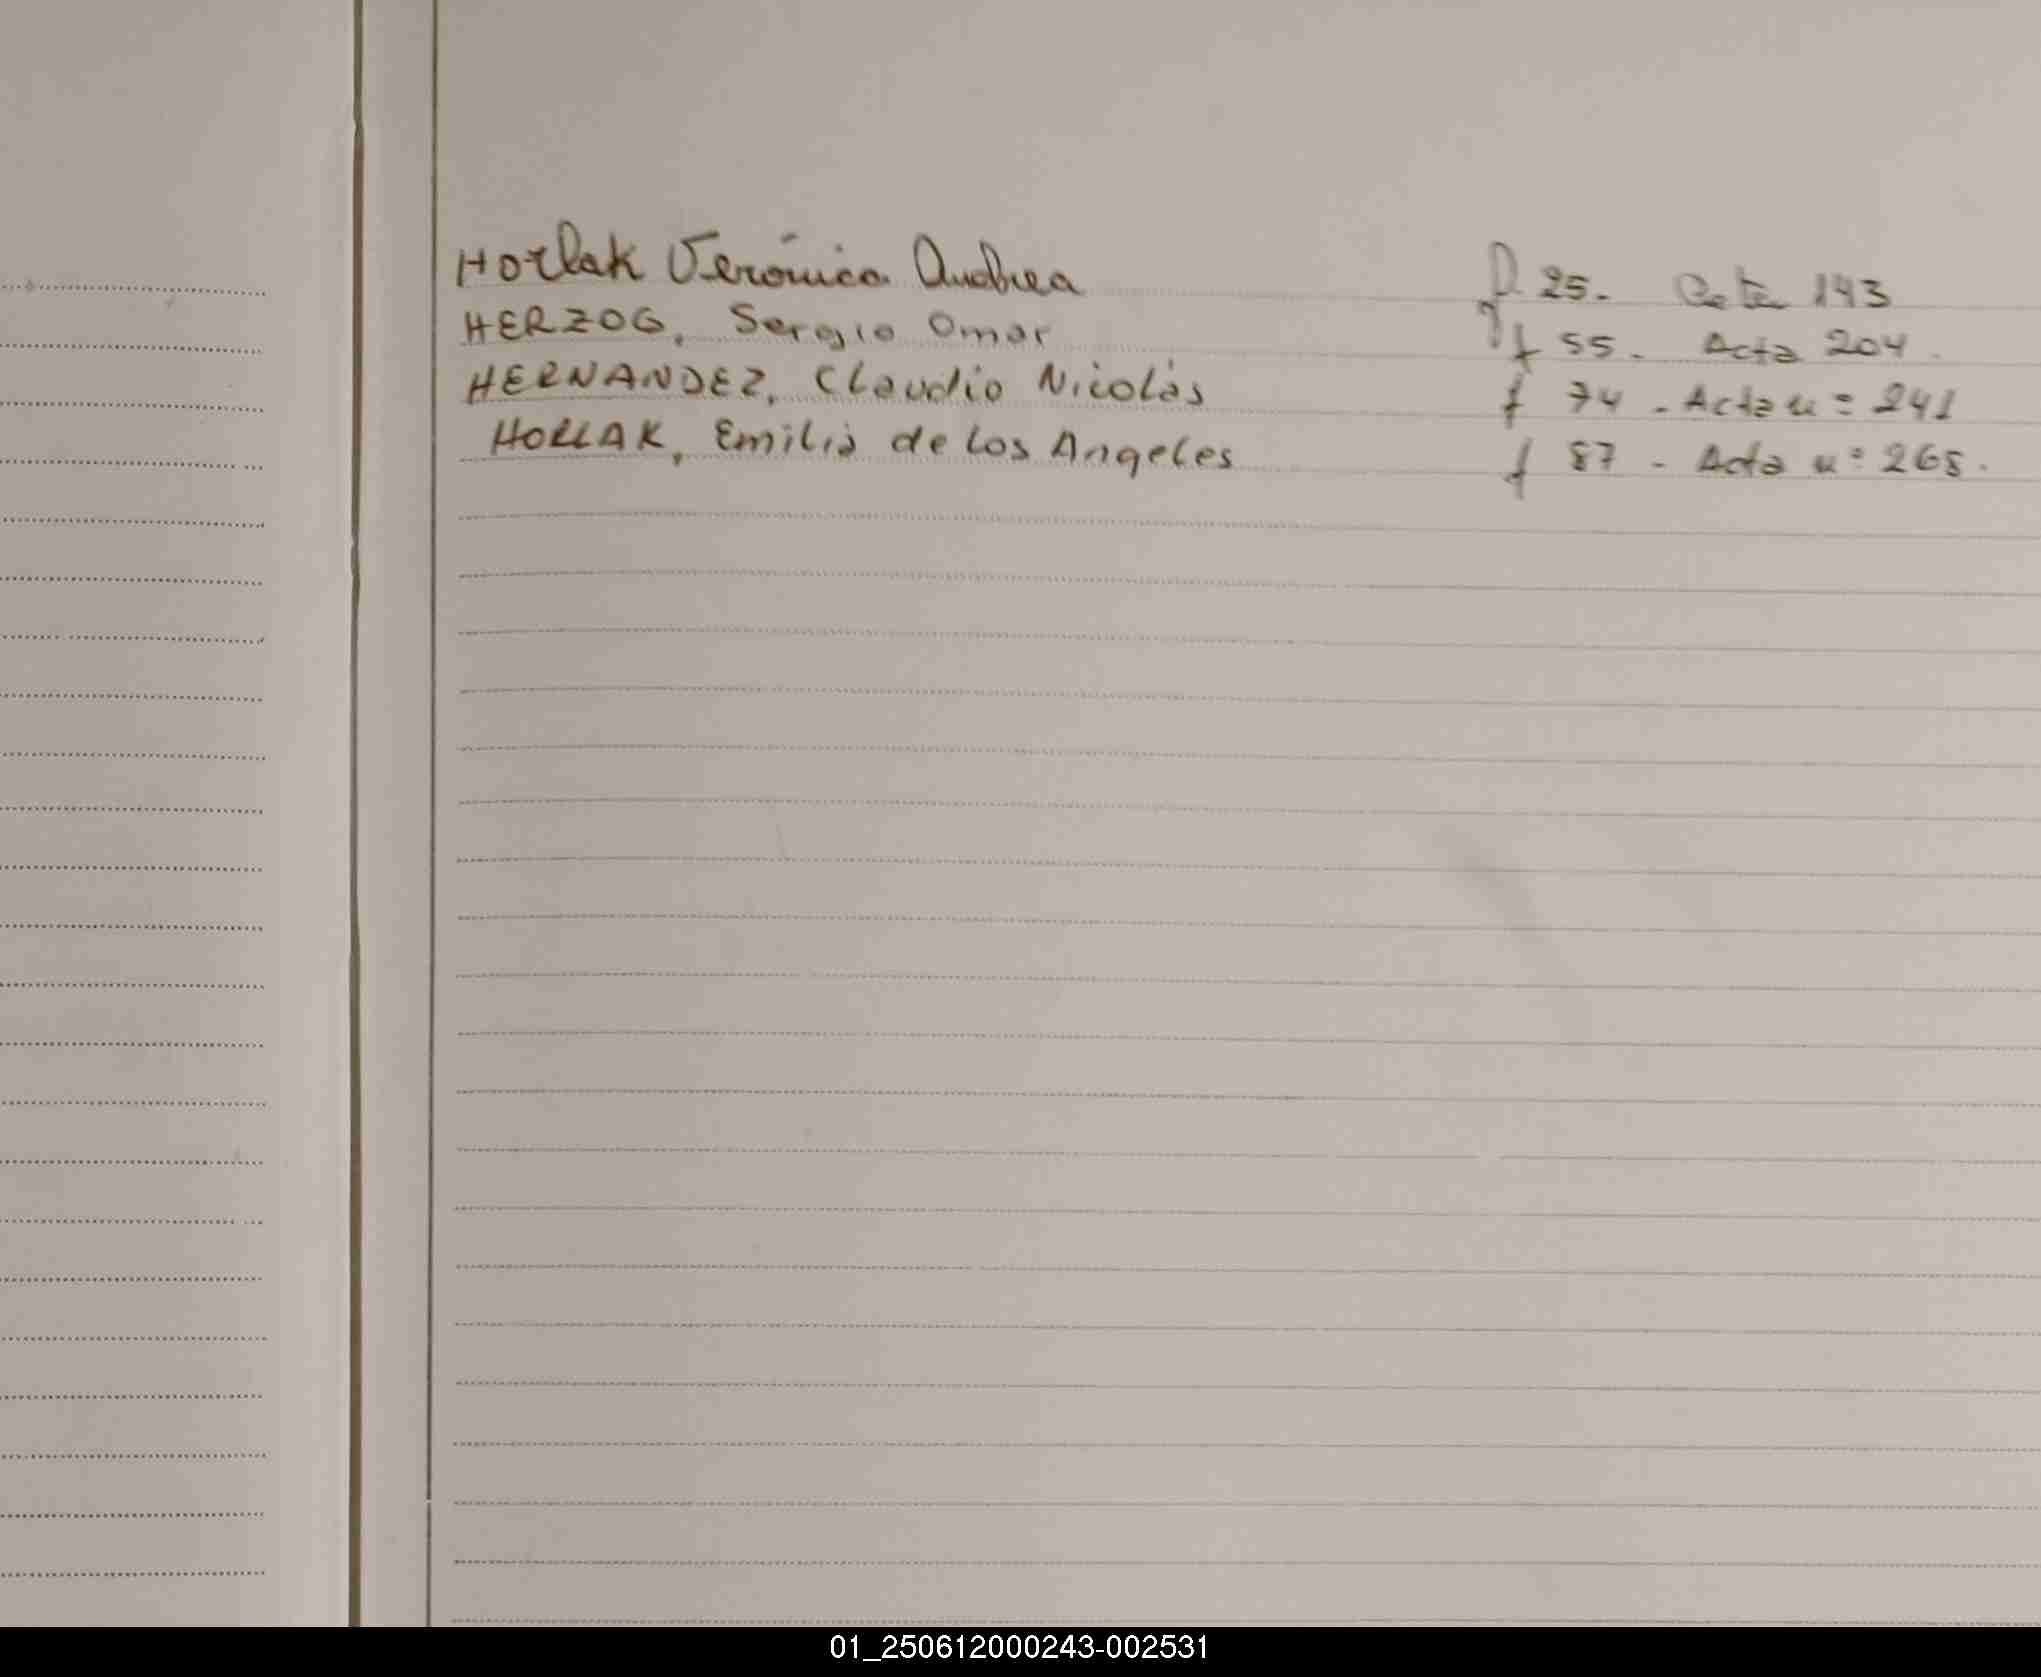 Horlak Verónica Andrea f. 25. Acta 143
HERZOG, Sergio Omar f 55. Acta 204.
HERNANDEZ, Claudio Nicolás f 74 - Acta n: 241
HORLAK, Emilia de Los Angeles f 87 - Acta n: 268.
01_250612000243-002531